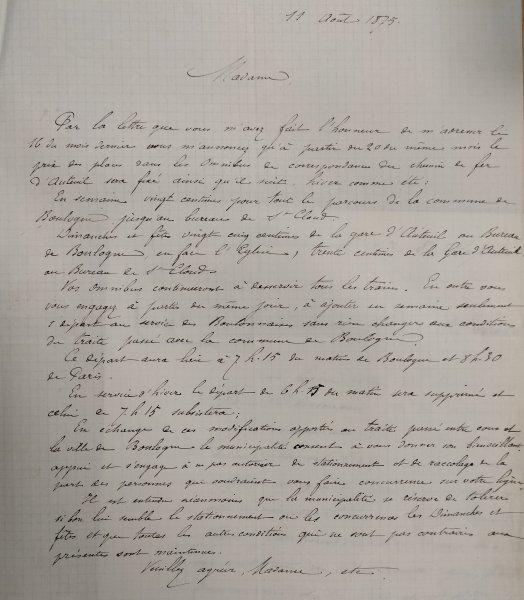 11 Août 1875.
Madame
Par la lettre que vous m'avez fait l'honneur de m'adresser le
16 du mois dernier vous m'annoncez qu'à partir du 20 du même mois le
prix des places dans les Omnibus de correspondance du chemin de fer
d'Auteuil sera fixé ainsi qu'il suit, hiver comme été :
En semaine vingt centimes pour tout le parcours de la commune de
Boulogne jusqu'au bureau de St Cloud.
Dimanches et fêtes vingt cinq centimes de la gare d'Auteuil au Bureau
de Boulogne, en face l'Eglise, trente centimes de la Gare d'Auteuil
au Bureau de St Cloud.
Vos omnibus continueront à desservir tous les trains. En outre vous
vous engagez à partir du même jour, à ajouter en semaine seulement
1 départ au service des Boulonnaises sans rien changer aux conditions
du traité passé avec la commune de Boulogne.
Ce départ aura lieu à 7 h. 15 du matin de Boulogne et 8 h. 30
de Paris.
En service d'hiver le départ de 6 h 15 du matin sera supprimé et
celui de 7 h 15 subsistera ;
En échange de ces modifications apportées au traité passé entre vous et
la ville de Boulogne la municipalité consent à vous donner son bienveillant
appui et s'engage à ne pas autoriser de stationnement et de raccolage de la
part des personnes qui voudraient vous faire concurrence sur votre ligne
Il est entendu néanmoins que la municipalité se réserve de tolérer
si bon lui semble le stationnement ou les concurrences les Dimanches et
fêtes et que toutes les autres conditions qui ne sont pas contraires aux
présentes sont maintenues.
Veuillez agréer, Madame, etc.